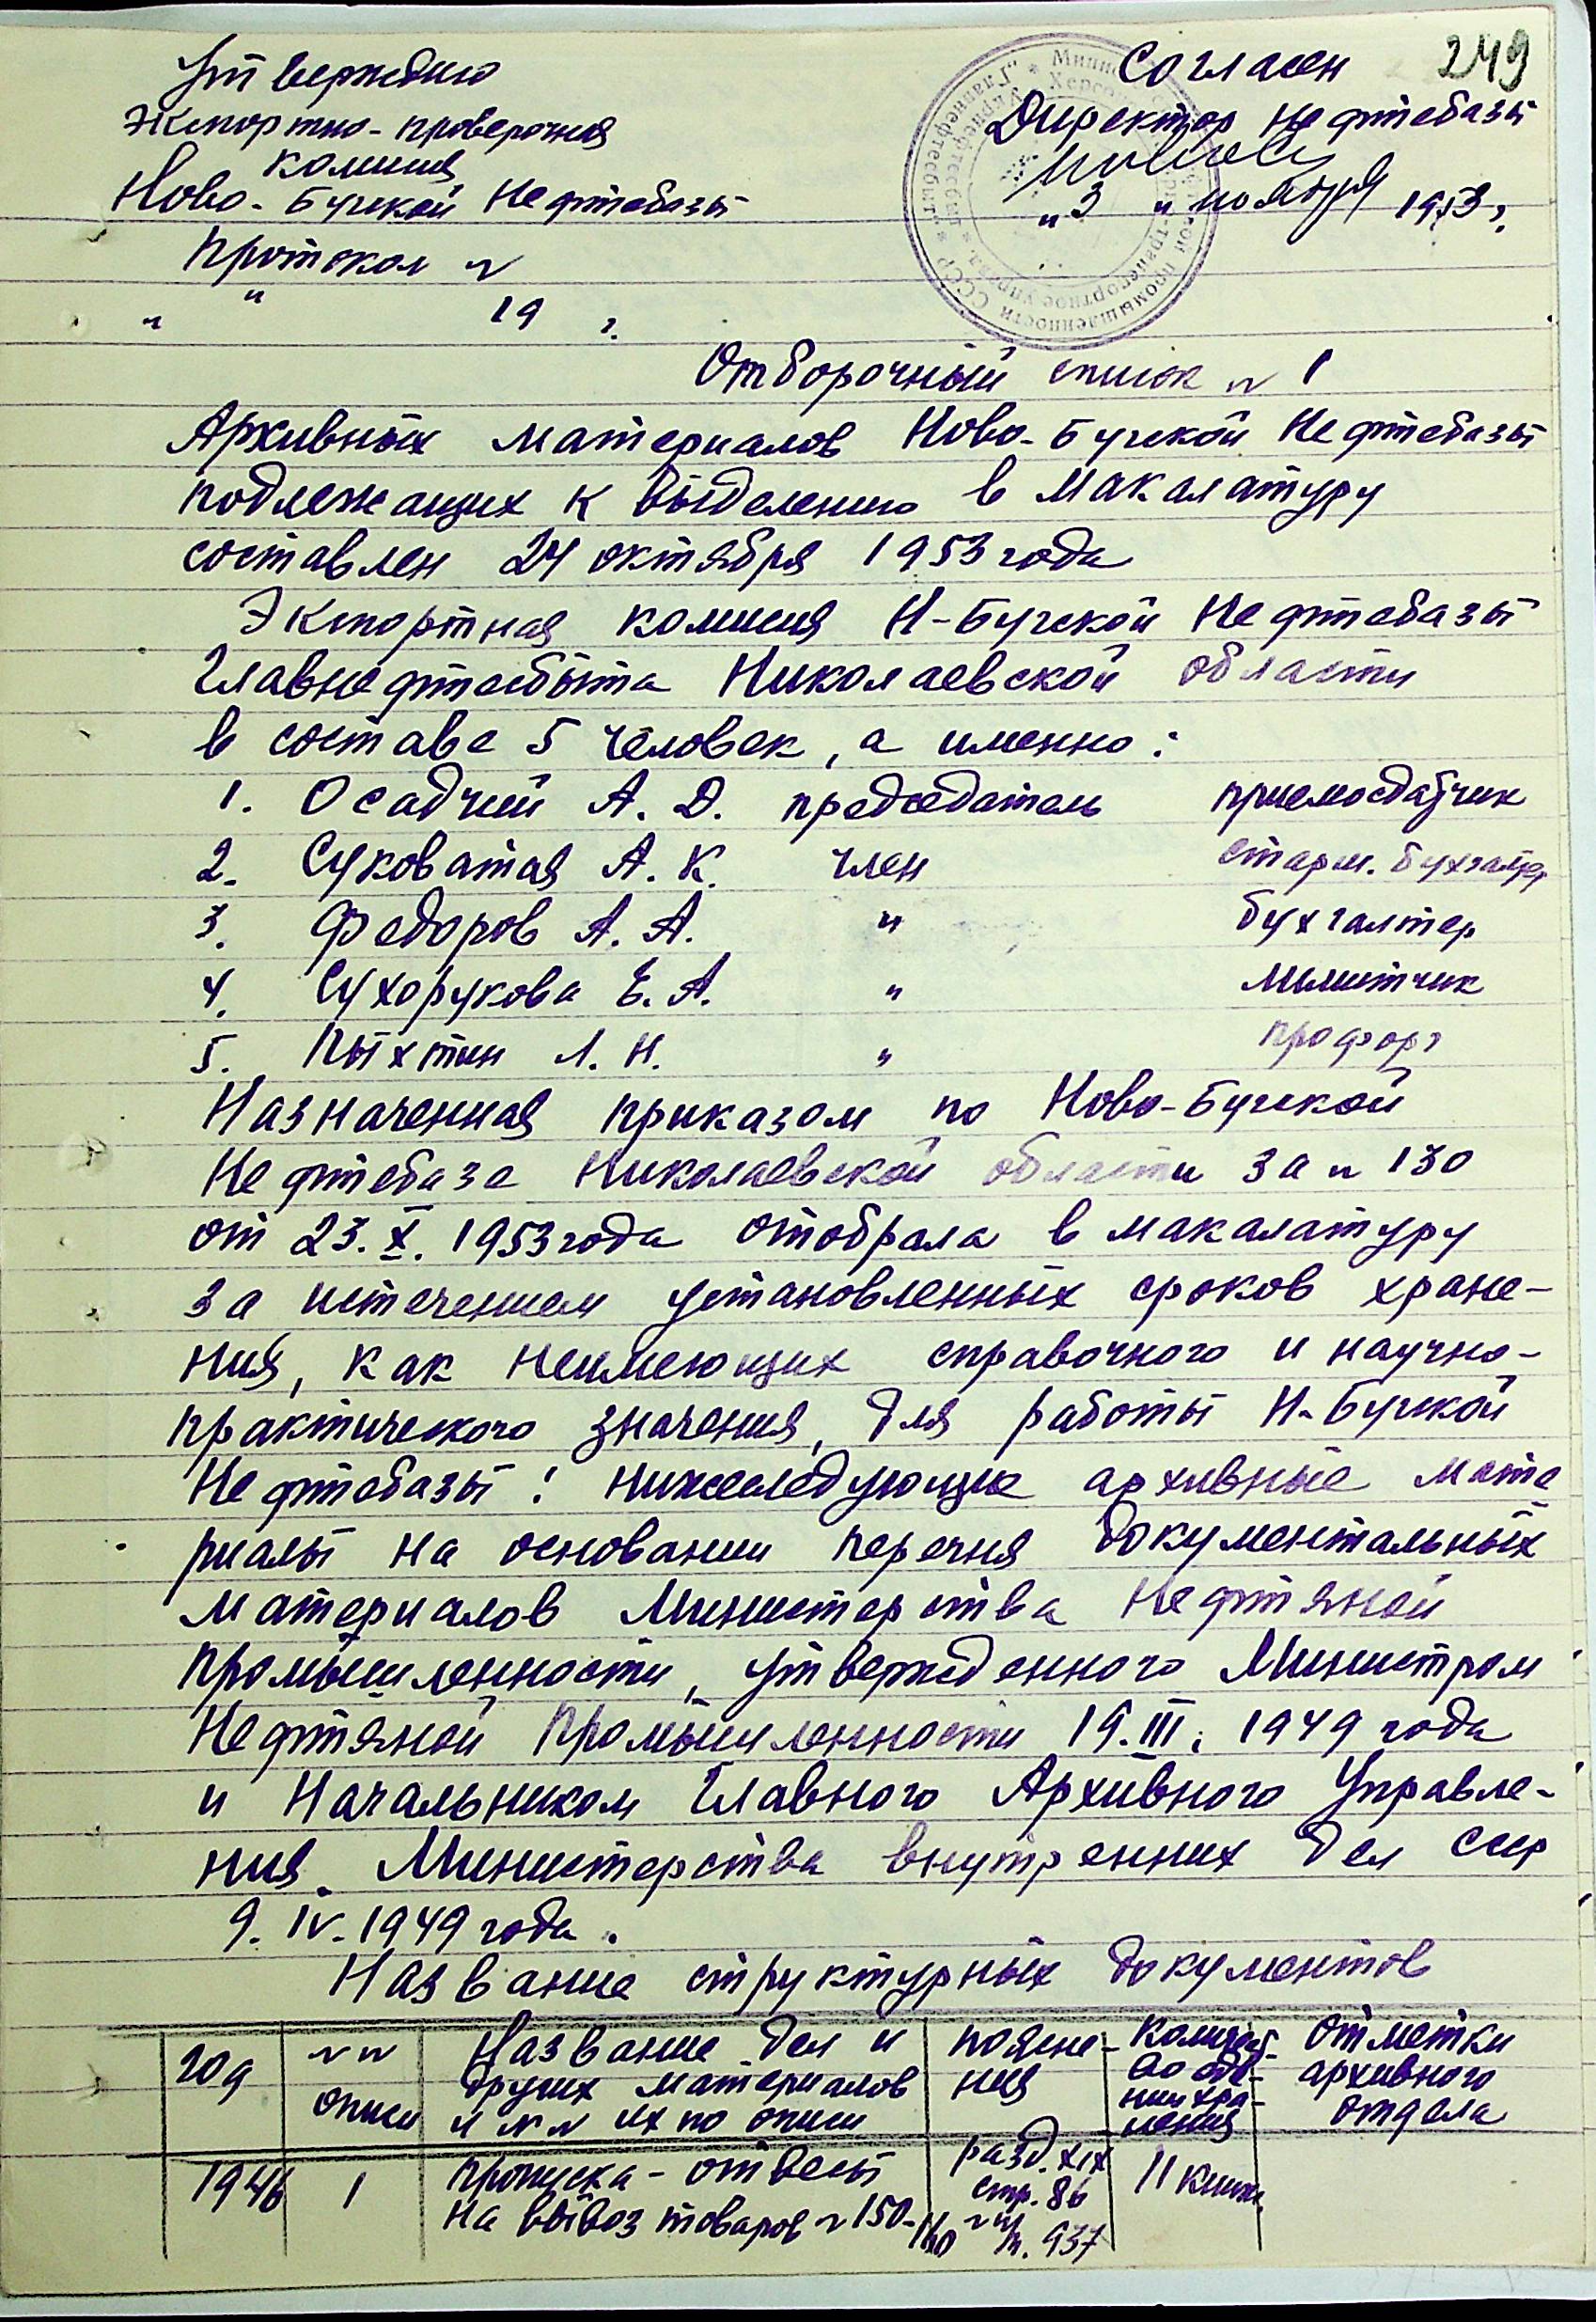 249
Утверждаю
Экспортно-проверочная
комисия
Ново-Бугской Нефтебазы
Протокол №
" " 19 г.
Согласен
Директор Нефтебазы
"3" ноября 1953 г.
Отборочный список № 1
Архивных материалов Ново-Бугской Нефтебазы
подлежащих к выделению в макалатуру
составлен 24 октября 1953 года
Экспортная комисия Н-Бугской Нефтебазы
Главнефтесбыта Николаевской области
в составе 5 человек, а именно:
1. Осадчий А. Д. председатель приемосдатчик
2. Суковатая А. К. член старш. бухгалтер
3. Федоров А. А. " бухгалтер
4. Сухорукова Е. А. "
5. Пыхтин Л. Н. " профорг
Назначенная приказом по Ново-Бугской
Нефтебазе Николаевской области за № 130
от 23.X.1953 года отобрала в макалатуру
за истечением установленных сроков хране-
ния, как неимеющих справочного и научно-
практического значения, для работы Н-Бугской
Нефтебазы: нижеследующие архивные мате
риалы на основании перечня документальных
материалов Министерства Нефтяной
промышленности, утвержденного Министром
Нефтяной промышленности 19.III.1949 года
и Начальником Главного Архивного Управле-
ния Министерства внутренних дел ссср
9.IV.1949 года.
Название структурных документов
год
№№
описи
Название дел и
других материалов
и №№ их по описи
поясне-
ния
Количест-
во еде-
ниц хра-
нения
отметки
архивного
отдела
1946
1
Пропуска-отвесы
на вывоз товаров № 150-160
разд. XIX
стр. 86
т. 937
11 книж.